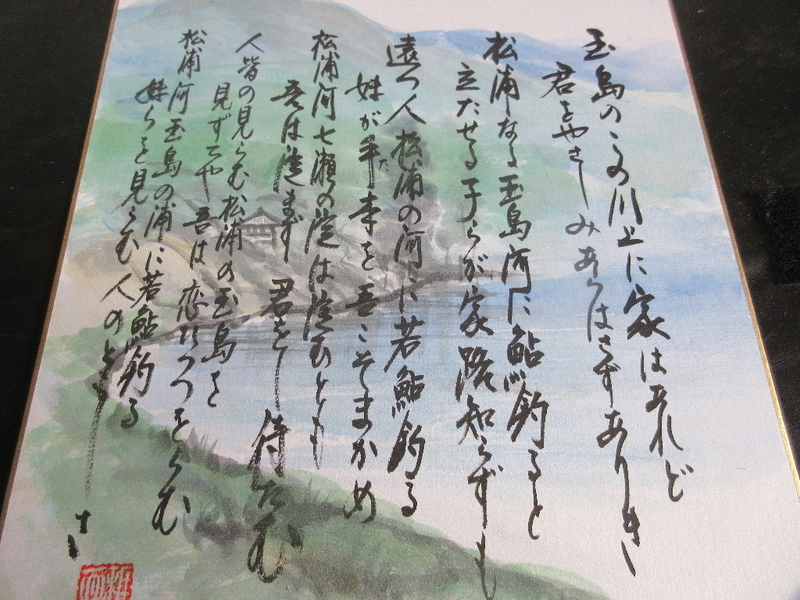 玉島のこの川上に家はあれど
君をやさしみあらはさずありき
松浦なる玉島河に鮎釣ると
立たせる子らが家路知らずも
遠つ人松浦の河に若鮎釣る
妹が手本を吾こそまかめ
た
松浦河七瀬の淀は淀むとも
吾は淀まず君をし待たむ
人皆の見らむ松浦の玉島を
見ずてや吾は恋ひつつをらむ
松浦河玉島の浦に若鮎釣る
妹らを見らむ人のともしさ